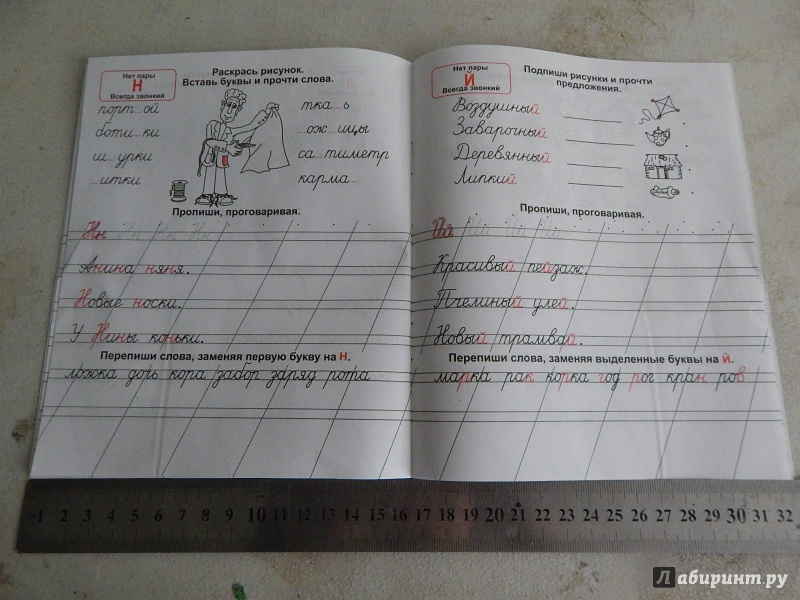 Нет пары
Н
Всегда звонкий
Раскрась рисунок.
Вставь буквы и прочти слова.
порт...ой
боти...ки
ш...урки
...итки
тка...ь
...ож...ицы
са...тиметр
карма...
Пропиши, проговаривая.
Нн Нн Нн Нн
Анина няня.
Новые носки.
У Нины коньки.
Перепиши слова, заменяя первую букву на Н.
ложка дочь кора забор заряд рота
Нет пары
Й
Всегда звонкий
Подпиши рисунки и прочти
предложения.
Воздушный
Заварочный
Деревянный
Липкий
Пропиши, проговаривая.
Йй Йй Йй Йй
Красивый пейзаж.
Пчелиный улей.
Новый трамвай.
Перепиши слова, заменяя выделенные буквы на Й.
марка рак корка год рог кран ров
1 2 3 4 5 6 7 8 9 10 11 12 13 14 15 16 17 18 19 20 21 22 23 24 25 26 27 28 29 30 31 32
Лабиринт.ру